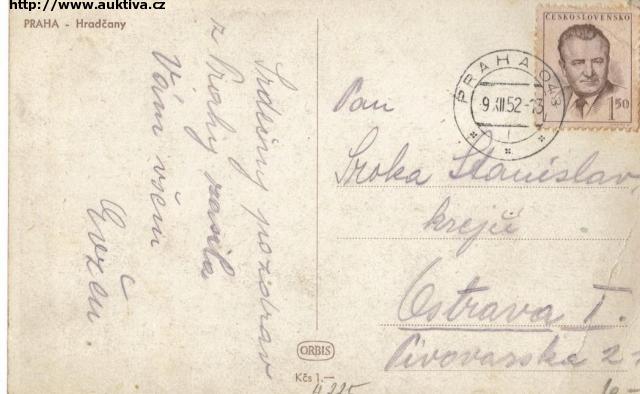 http://www.auktiva.cz
PRAHA - Hradčany
Srdečný pozdrav
z Prahy zasílá
Vám všem
ČESKOSLOVENSKO
1,50
PRAHA 048
-9.XII.52-13
1
Pan
Sroka Stanislav
krejčí
Ostrava I.
Pivovarska 2
ORBIS
Kčs 1.—
4225
10-